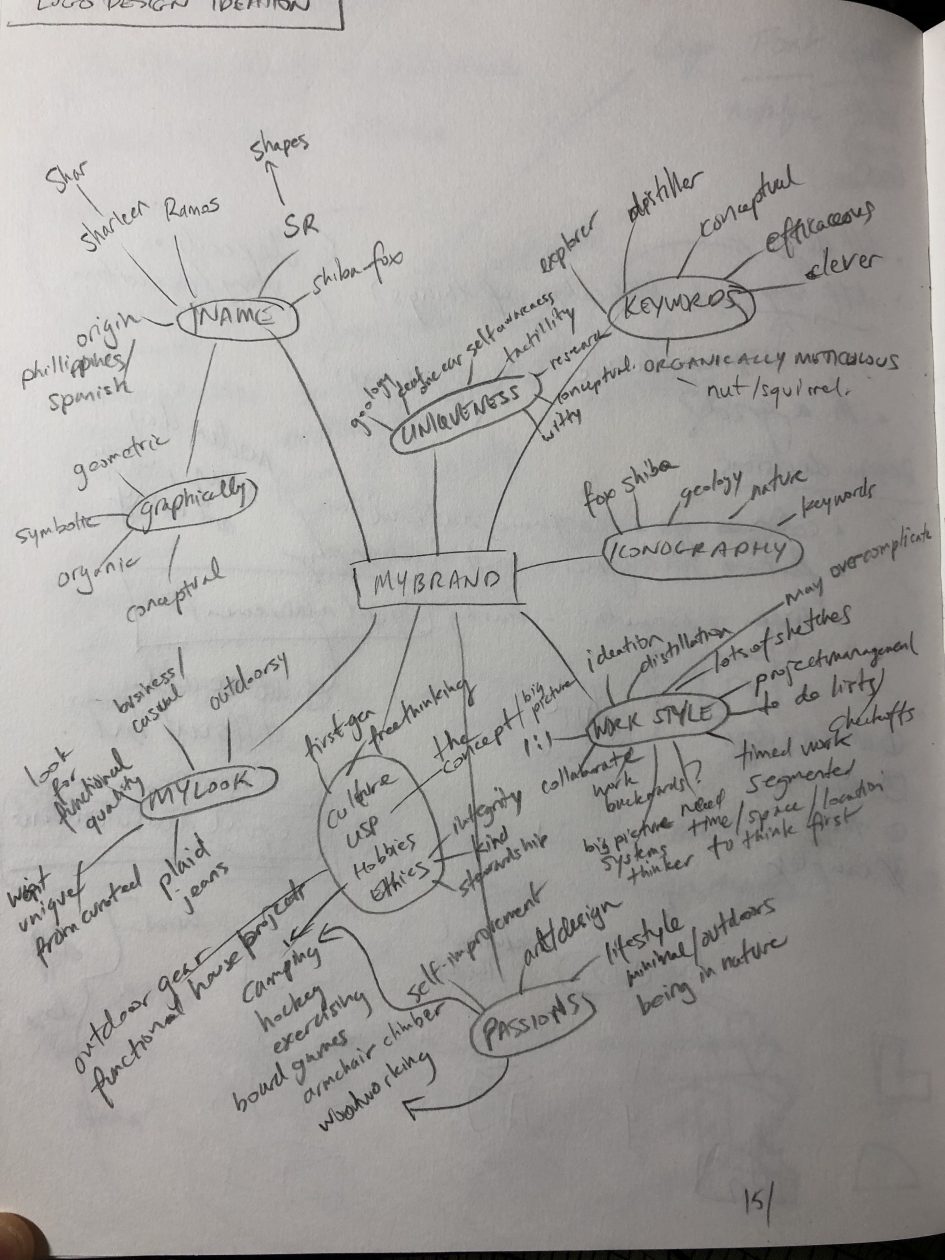 LOGO DESIGN IDEATION
shapes
Shar
Sharleen
Ramos
SR
shiba-fox
NAME
origin
phillippines/
spanish
geometric
graphically
symbolic
organic
conceptual
explorer
distiller
conceptual
efficaceous
clever
KEYWORDS
ORGANICALLY METICULOUS
nut/squirrel.
geology
deaf
one ear
self awareness
tactillity
research
conceptual.
witty
UNIQUENESS
fox
shiba
geology
nature
keywords
ICONOGRAPHY
MYBRAND
business/
casual
outdoorsy
look
for
functional
quality
MYLOOK
unique/
from curated
plaid
jeans
first-gen
freethinking
the
concept/big
picture
Culture
USP
Hobbies
Ethics
integrity
kind
stewardship
ideation
distillation
may overcomplicate
lots of sketches
project management
to do lists/
checkoffs
WORK STYLE
1:1
collaborate
work
backwards?
timed work
big picture
systems
thinker
need segmented
time/space/location
to think first
outdoor gear
functional house projects
camping
hockey
exercising
board games
armchair climber
woodworking
self-improvement
art/design
lifestyle
minimal/outdoors
being in nature
PASSIONS
15/